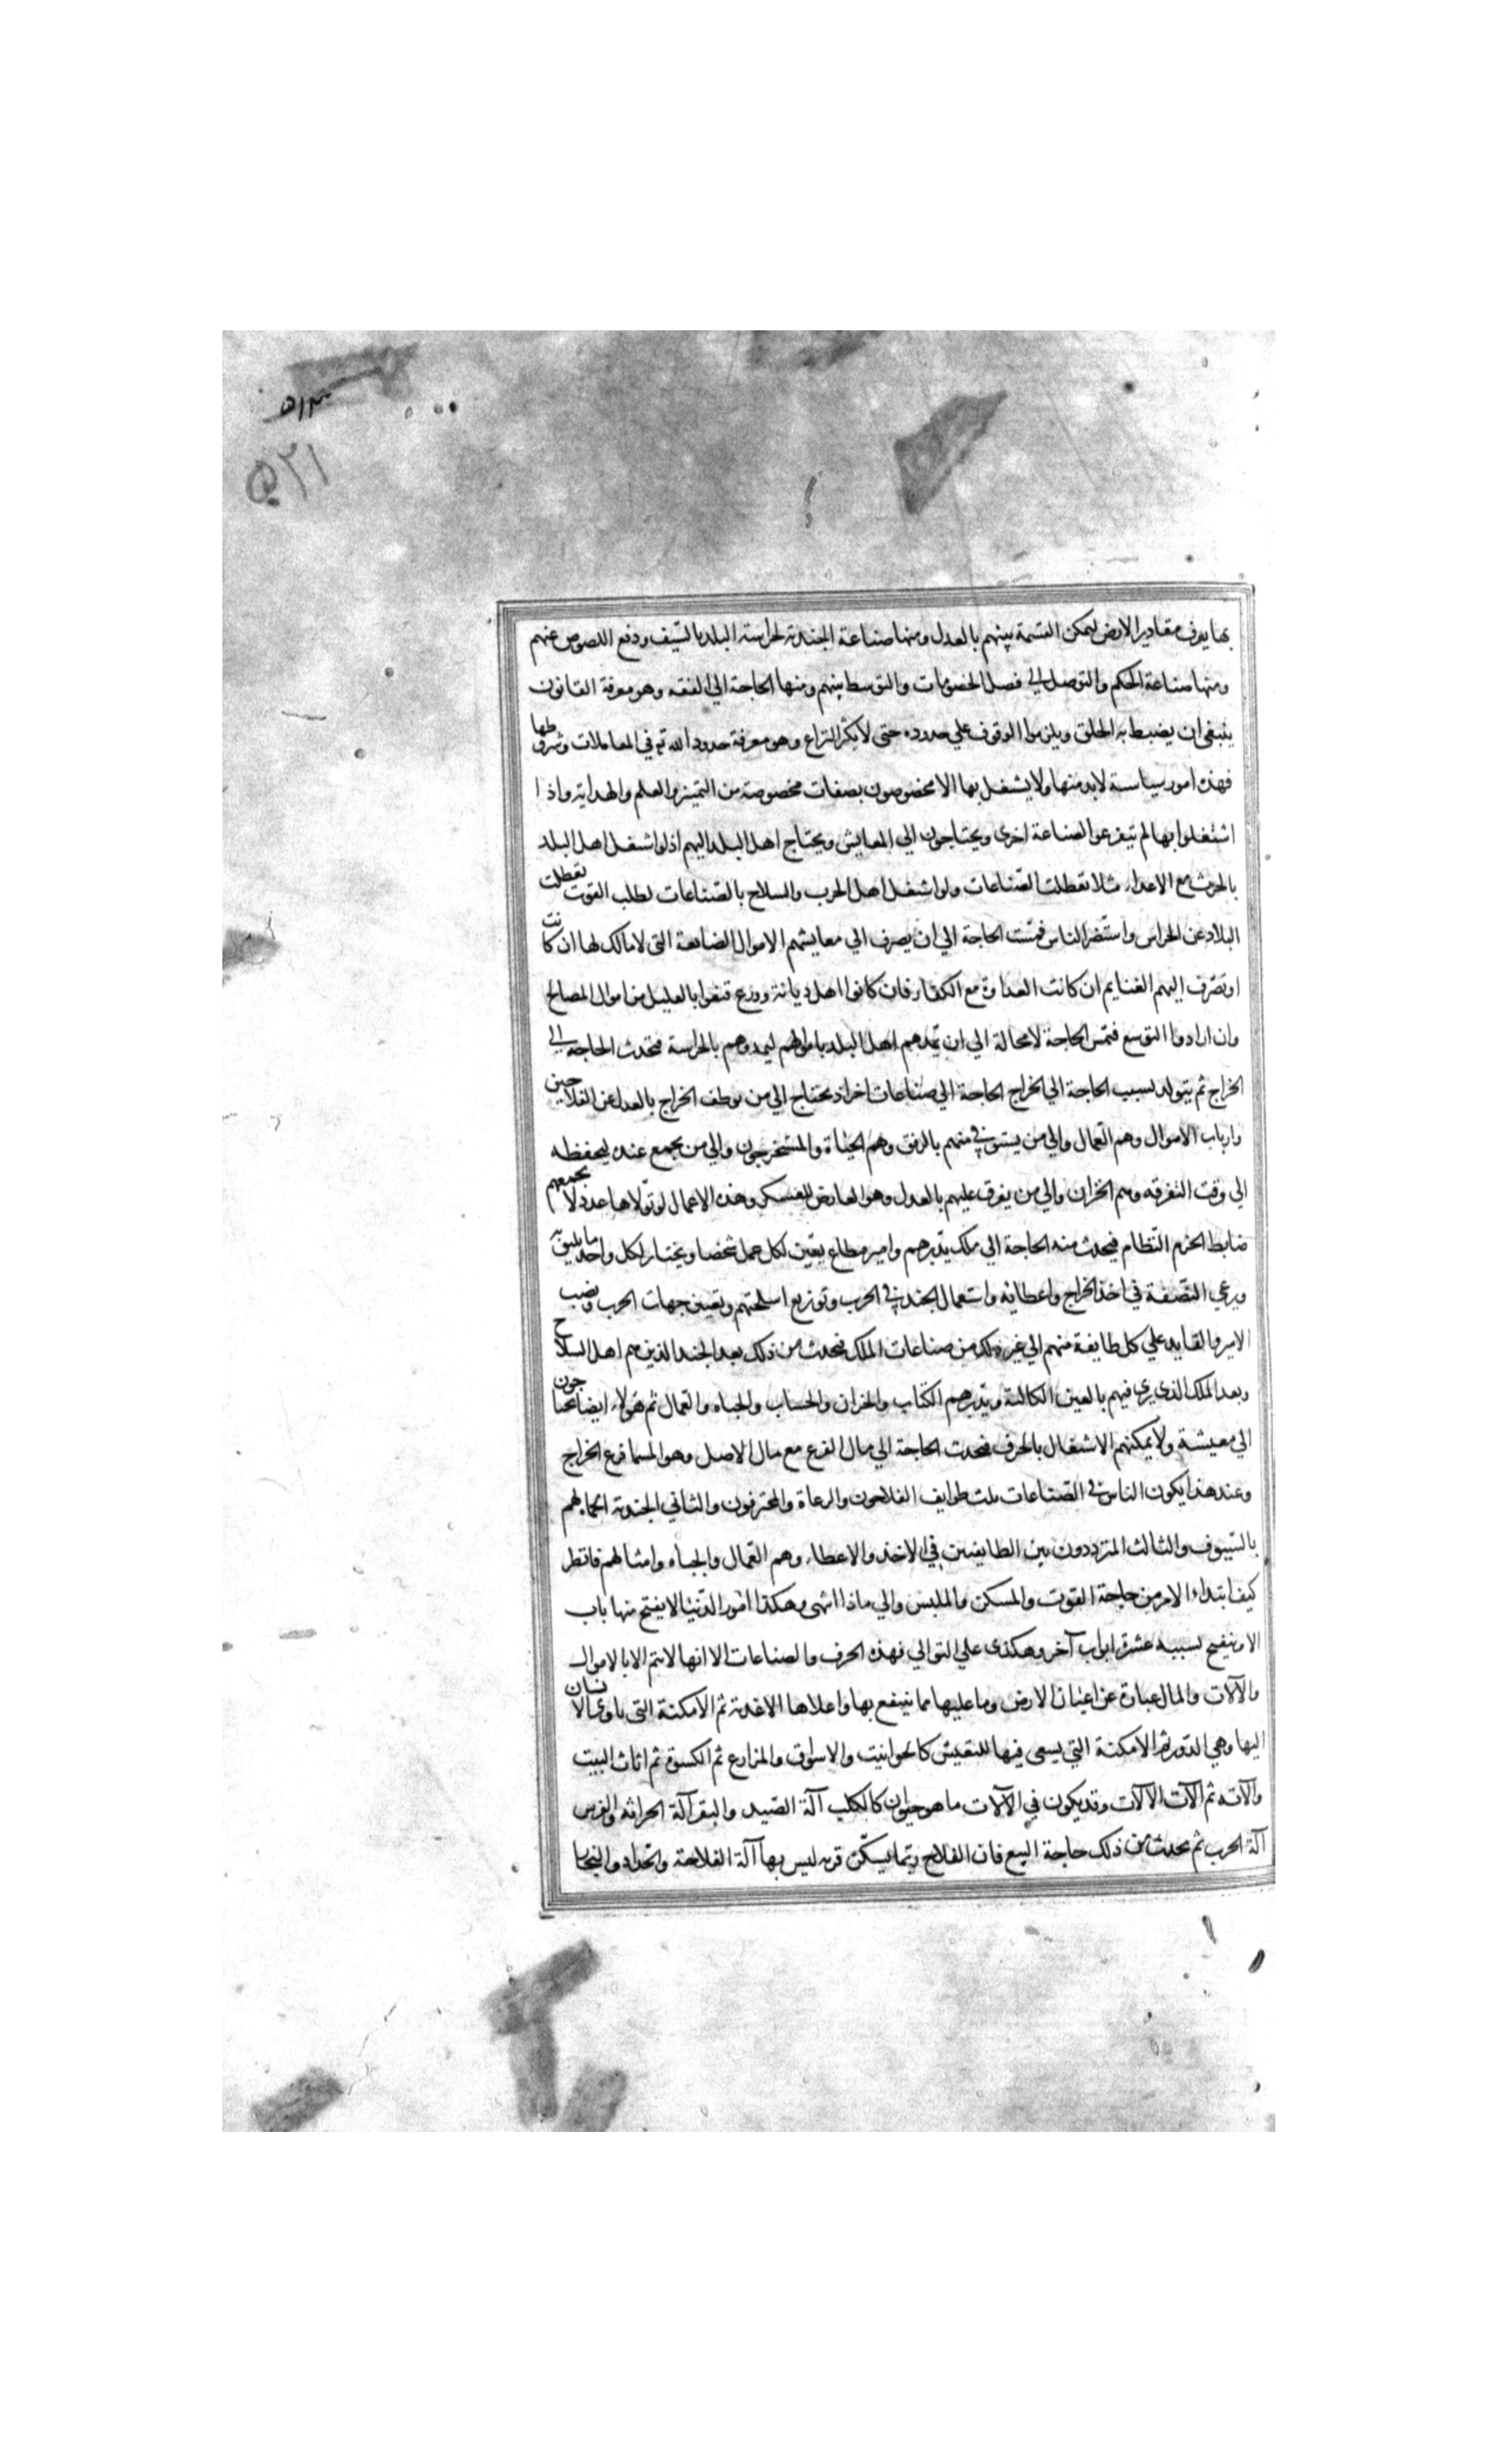 ۵۱۳
۵۲۱
بها يعرف مقادير الارض ليمكن القسمة بينهم بالعدل ومنها صناعة الجندية لحراسة البلد بالسّيف ودفع اللصوص عنهم
ومنها صناعة الحكم والتوصل الي فصل الخصومات والتوسط بينهم ومنها الحاجة الي الفقه وهو معرفة القانون
ينبغي ان يضبط به الخلق ويلزموا الوقوف علي حدوده حتى لا يكثر النزاع وهو معرفة حدود الله تع في المعاملات وشروطها
فهذه امور سياسة لابد منها ولا يشتغل بها الا مخصوصون بصفات مخصوصة من التميز والعلم والهداية واذا
اشتغلوا بها لم يتفرعوا لصناعة اخرى ويحتاجون الي المعايش ويحتاج اهل البلد اليهم اذ لو اشتغل اهل البلد
بالحرث مع الاعداء مثلا تعطلت الصّناعات ولو اشتغل اهل الحرب والسلاح بالصّناعات لطلب القوت تعطلت
البلاد عن الحراس واستضر الناس فمسّت الحاجة الي ان يصرف الي معايشهم الاموال الضايعة التى لا مالك لها ان كانت
او تصرف اليهم الغنايم ان كانت العداوة مع الكفار فان كانوا اهل ديانة وورع قنعوا بالقليل من اموال المصالح
وان ارادوا التوسع فتمس الحاجة لا محالة الي ان يمدهم اهل البلد باموالهم ليمدوهم بالحراسة فتحدث الحاجة الي
الخراج ثم يتولد بسبب الحاجة الي الخراج الحاجة الي صناعات اخر اذ يحتاج الي من يوظف الخراج بالعدل عن الفلاحين
وارباب الاموال وهم العمال والي من يستوفي منهم بالرفق وهم الجباة والمستخرجون والي من يجمع عنده ليحفظه
الي وقت التفرقه وهم الخزان والي من يفرق عليهم بالعدل وهو العارض للعسكر وهذه الاعمال لو تولاها عدد لا يجمعهم
ضابط انخرم النّظام فيحدث منه الحاجة الي ملك يدّبرهم وامير مطاع يعيّن لكل عمل شخصا ويختار لكل واحد ما يليق به
ويرعي النّصفة في اخذ الخراج واعطائه واستعمال الجند في الحرب وتوزيع اسلحتهم وتعيين جهات الحرب ونصب
الامير والقايد علي كل طايفة منهم الي غير ذلك من صناعات الملك فيحدث من ذلك بعد الجند الذين هم اهل السلاح
وبعد الملك الذي يري فيهم بالعين الكالئة ويدّبرهم الكتّاب والخزان والحساب والجباه والعمال ثم هولاء ايضا يحتاجون
الي معيشة ولا يمكنهم الاشتغال بالحرف فيحدث الحاجة الي مال الفرع مع مال الاصل وهو المسما فرع الخراج
وعند هذا يكون الناس في الصّناعات ثلث طوايف الفلاحون والرعاة والمحترفون والثاني الجندية
بالسّيوف والثالث المتردّدون بين الطايفتين في الاخذ والاعطاء وهم العمال والجباه وامثالهم فانظر
كيف ابتداء الامر من حاجة القوت والمسكن والملبس والي ماذا انتهى وهكذا امور الدّنيا لا يفتح منها باب
الا ينفتح بسببه عشرة ابواب آخر وهكذى علي التوالي فهذه الحرف والصناعات الا انها لا تتم الا بالاموال
والآلات والمال عبارة عن اعيان الارض وما عليها مما ينتفع بها واعلاها الاغذية ثم الامكنة التى ياوي الانسان
اليها وهي الدّور ثم الامكنة التي يسعى فيها للتعيش كالحوانيت والاسواق والمزارع ثم الكسوة ثم اثاث البيت
والآته ثم الآت الآلات وقد يكون في الآلات ما هو حيوان كالكلب آلة الصّيد والبقر آلة الحراثه والفرس
آلة الحرب ثم يحدث من ذلك حاجة البيع فان الفلاح ربّما يسكن قريه ليس بها آلة الفلاحة والحّداد والنجار